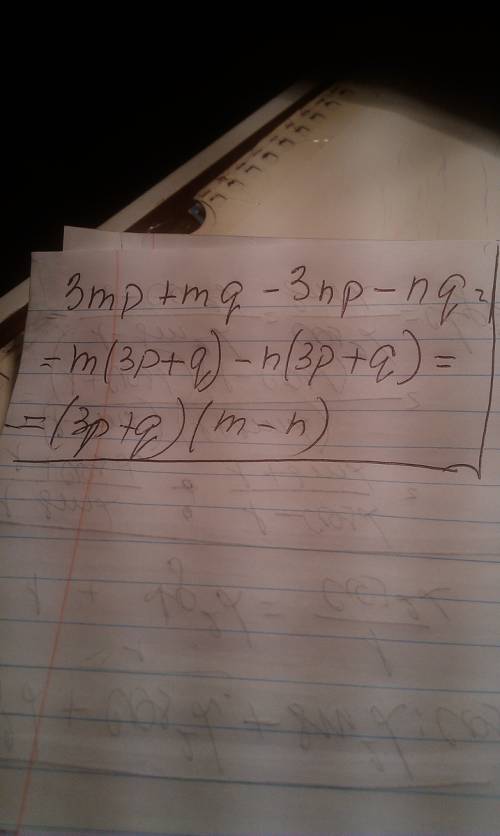 3mp+mq-3np-nq=
=m(3p+q)-n(3p+q)=
=(3p+q)(m-n)